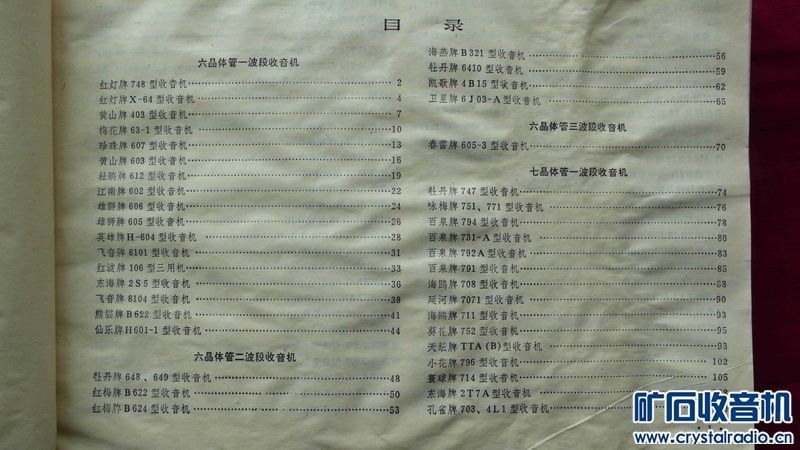 目录
六晶体管一波段收音机
红灯牌 748 型收音机 2
红灯牌 X-64 型收音机 4
黄山牌 403 型收音机 7
梅花牌 63-1 型收音机 10
珍珠牌 607 型收音机 13
黄山牌 603 型收音机 16
杜鹃牌 612 型收音机 19
江南牌 602 型收音机 22
雄狮牌 606 型收音机 24
雄狮牌 605 型收音机 26
英雄牌 H-604 型收音机 28
飞音牌 8101 型收音机 31
红波牌 106 型三用机 33
东海牌 2S5 型收音机 36
飞音牌 8104 型收音机 38
熊猫牌 B622 型收音机 41
仙乐牌 H601-1 型收音机 44
六晶体管二波段收音机
牡丹牌 648、649 型收音机 48
红梅牌 B622 型收音机 50
红梅牌 B624 型收音机 53
海燕牌 B321 型收音机 56
牡丹牌 6410 型收音机 59
凯歌牌 4B15 型收音机 62
卫星牌 6J03-A 型收音机 65
六晶体管三波段收音机
春雷牌 605-3 型收音机 70
七晶体管一波段收音机
牡丹牌 747 型收音机 74
咏梅牌 751、771 型收音机 76
百泉牌 794 型收音机 78
百泉牌 731-A 型收音机 80
百泉牌 792A 型收音机 83
百泉牌 791 型收音机 85
海鸥牌 708 型收音机 88
延河牌 7071 型收音机 90
海鸥牌 711 型收音机 93
葵花牌 752 型收音机 95
天坛牌 TTA (B) 型收音机 93
小花牌 796 型收音机 102
寰球牌 714 型收音机 105
东海牌 2T7A 型收音机
孔雀牌 703、4L1 型收音机
矿石收音机
www.crystalradio.cn